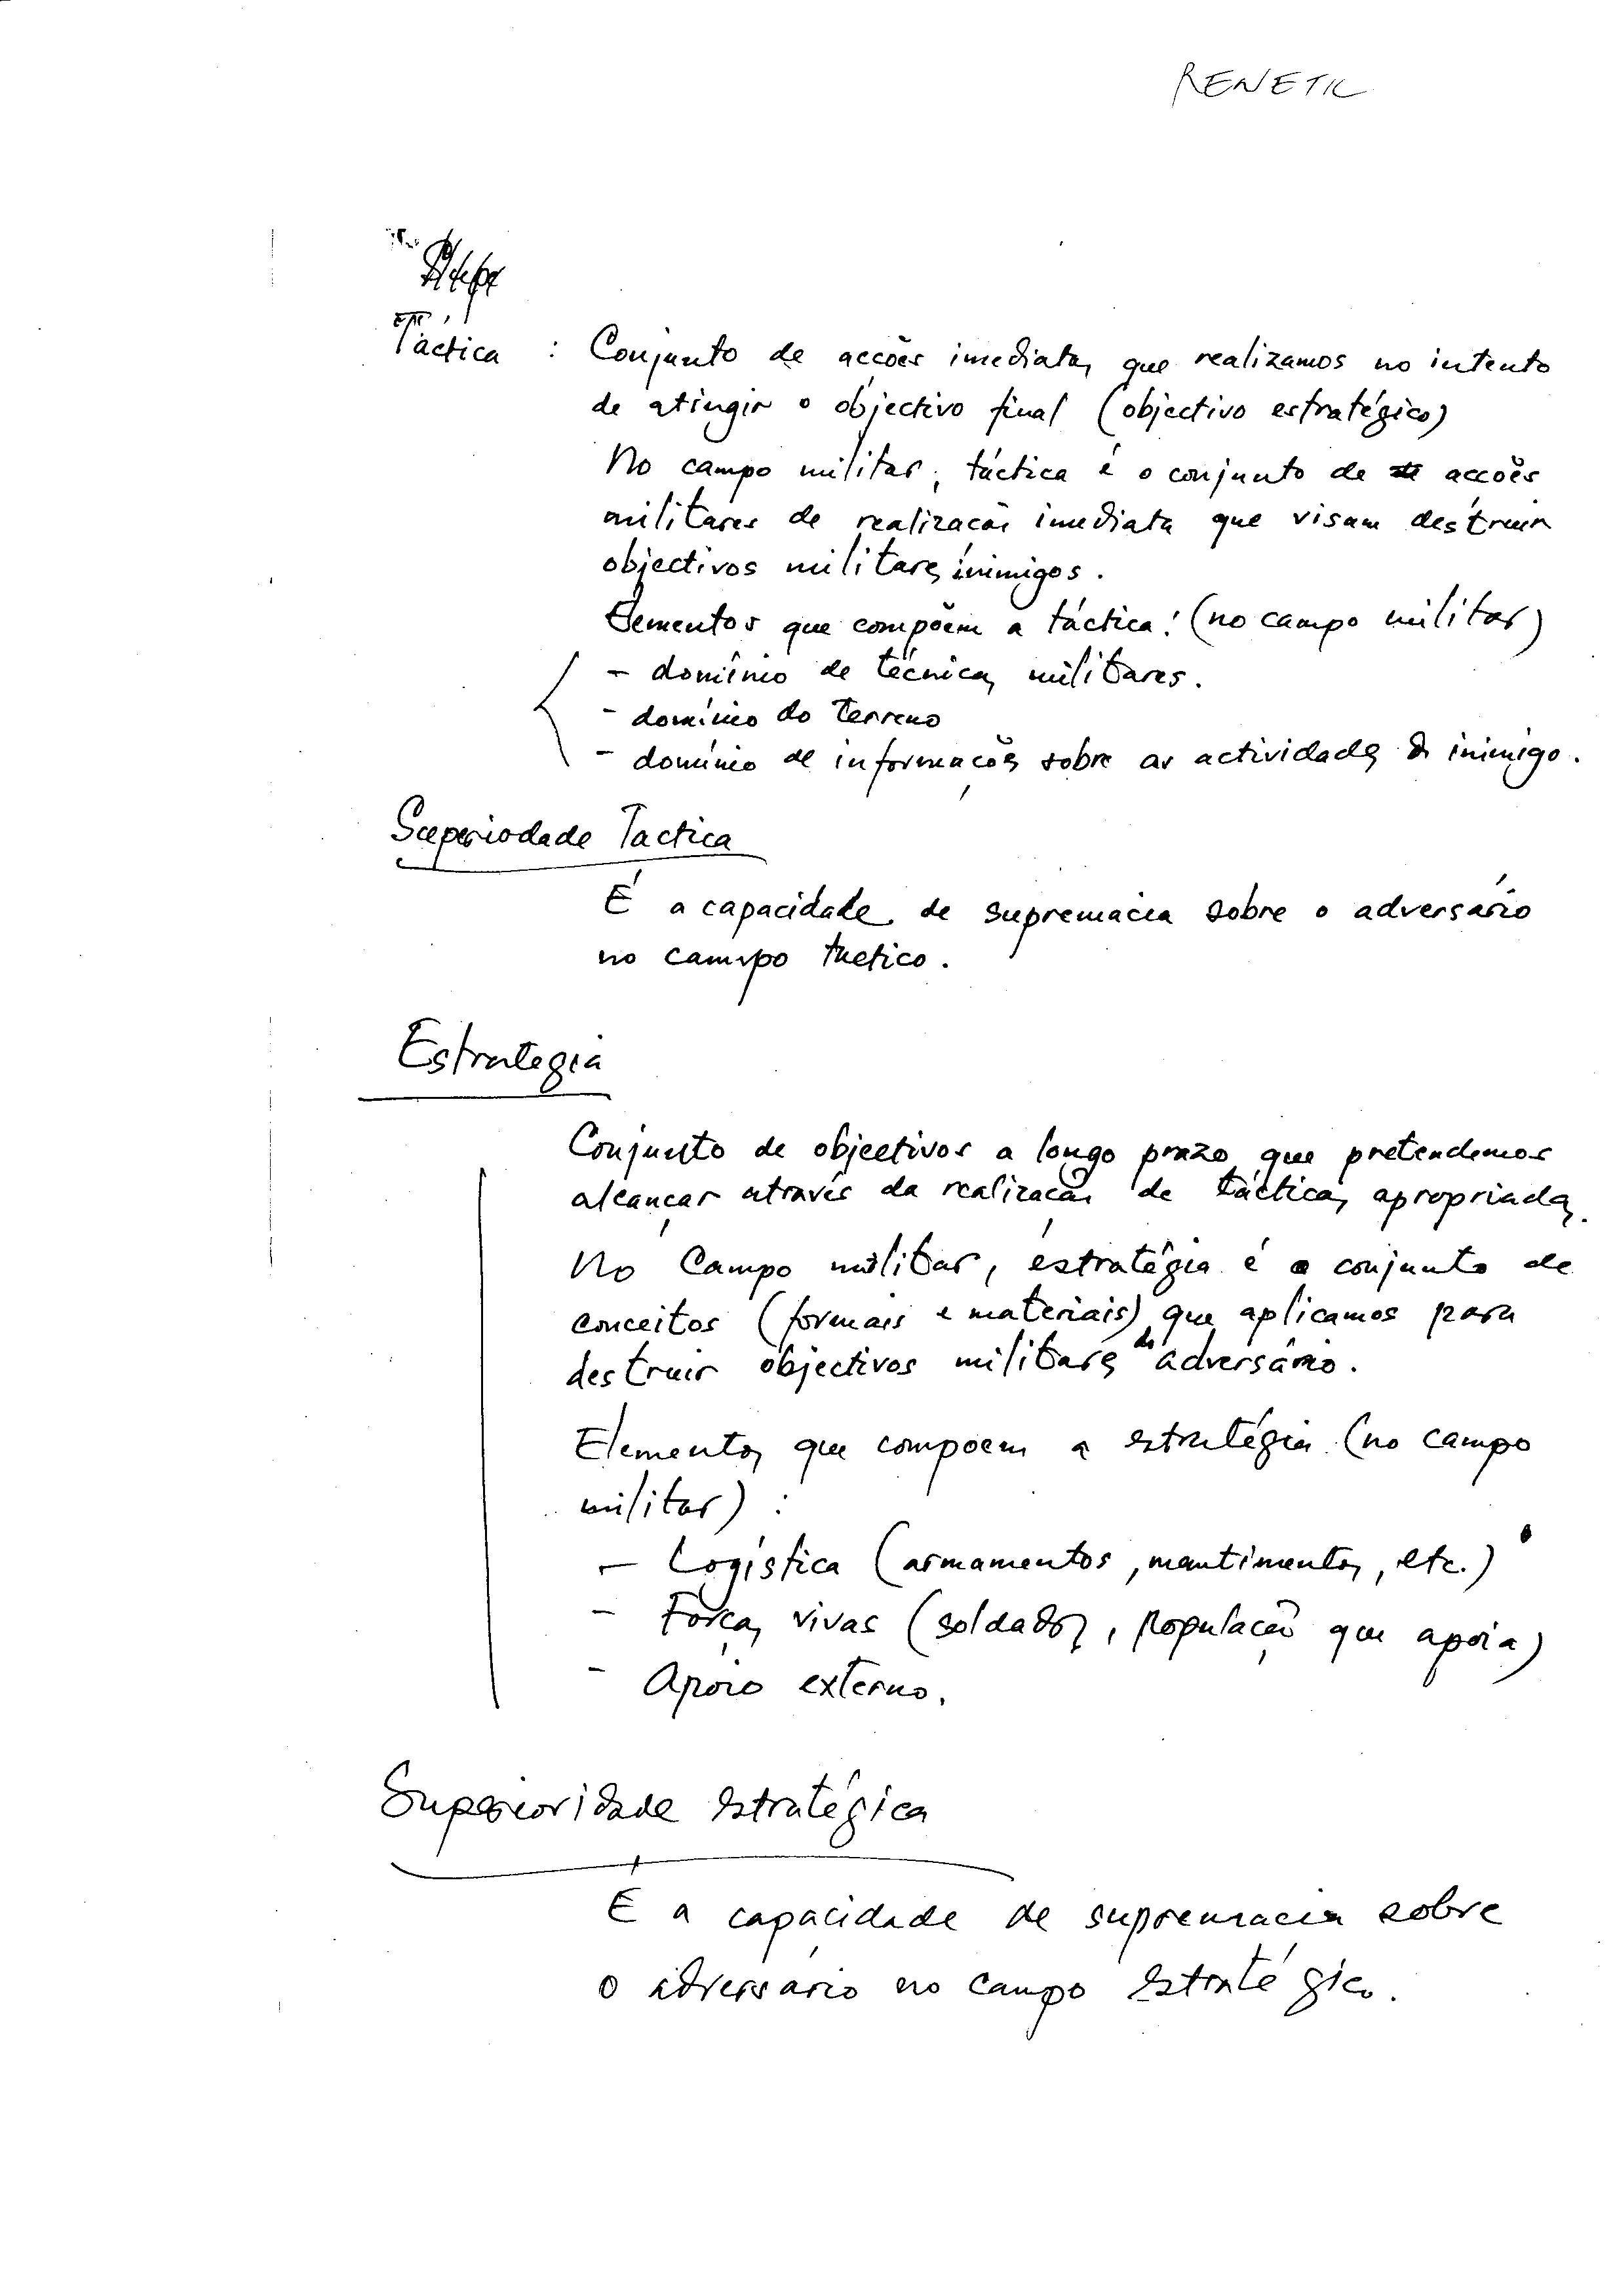 RENETIL
Táctica : Conjunto de acções imediatas que realizamos no intento
de atingir o objectivo final (objectivo estratégico)
No campo militar, táctica é o conjunto de acções
militares de realização imediata que visam destruir
objectivos militares inimigos.
Elementos que compõem a táctica: (no campo militar)
- domínio de técnicas militares.
- domínio do terreno
- domínio de informações sobre as actividades do inimigo.
Superiodade Tactica
É a capacidade de supremacia sobre o adversário
no campo táctico.
Estrategia
Conjunto de objectivos a longo prazo que pretendemos
alcançar através da realização de tácticas apropriadas.
No Campo militar, estratégia é o conjunto de
conceitos (formais e materiais) que aplicamos para
destruir objectivos militares do adversário.
Elementos que compoem a estratégia (no campo
militar) :
- Logística (armamentos, mantimentos, etc.)
- Forças vivas (soldados, população que apoia)
- Apoio externo.
Superioridade estratégica
É a capacidade de supremacia sobre
o adversário no campo estratégico.